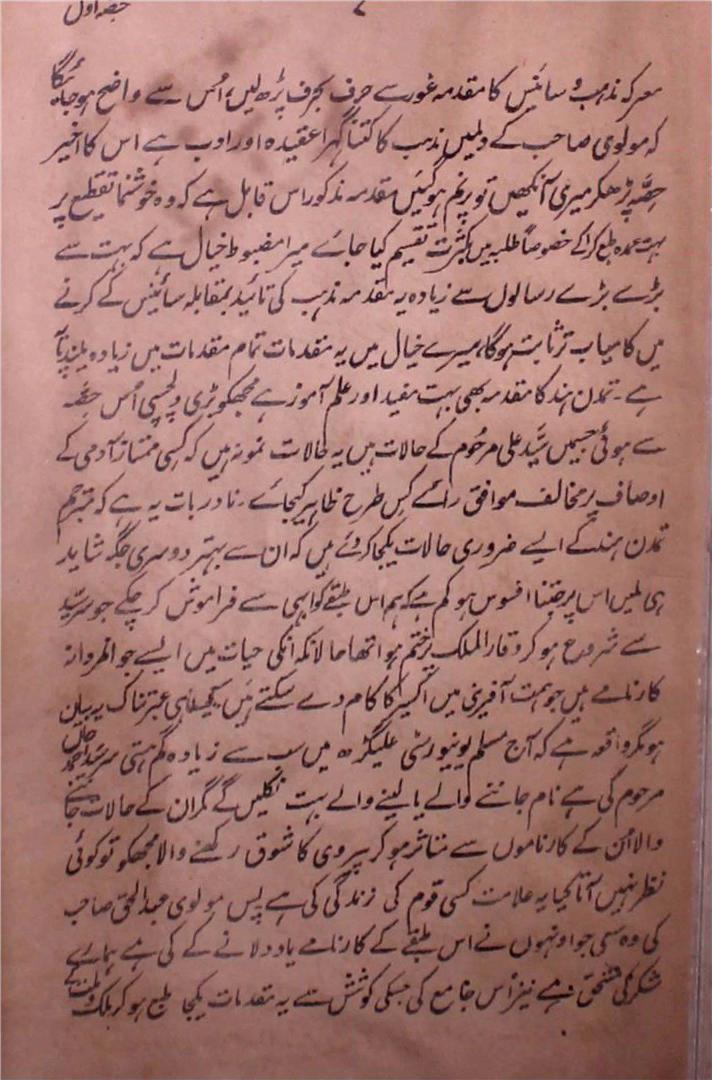 حصہ اول
۷
معرکہ مذہب و سائنس کا مقدمہ غور سے حرف بحرف پڑھ لیں، اُس سے واضح ہوجائیگا
کہ مولوی صاحب کے دلمیں مذہب کا کتنا گہرا عقیدہ اور ادب ہے اس کا اخیر
حصّہ پڑھکر میری آنکھیں تو پرنم ہوگئیں مقدمہ مذکور اس قابل ہے کہ وہ خوشنما تقطیع پر
بہت عمدہ طبع کرا کے خصوصاً طلبہ میں بکثرت تقسیم کیا جائے میرا مضبوط خیال ہے کہ بہت سے
بڑے بڑے رسالوں سے زیادہ یہ مقدمہ مذہب کی تائید بمقابلہ سائینس کے کرنے
میں کامیاب تر ثابت ہوگا، میرے خیال میں یہ مقدمات تمام مقدمات میں زیادہ بلند پایہ
ہے۔ تمدن ہند کا مقدمہ بھی بہت مفید اور علم آموز ہے مجھکو بڑی دلچسپی اُس حصّہ
سے ہوئی جسمیں سیّد علی مرحوم کے حالات ہیں یہ حالات نمونہ ہیں کہ کسی ممتاز آدمی کے
اوصاف پر مخالف موافق رائے کس طرح ظاہر کیجائے۔ نادر بات یہ ہے کہ مترجم
تمدن ہند کے ایسے ضروری حالات یکجا کردئے ہیں کہ ان سے بہتر دوسری جگہ شاید
ہی ملیں اس پر جتنا افسوس ہو کم ہے کہ ہم اس طبقے کو ابھی سے فراموش کرچکے جو سرسید
سے شروع ہوکر وقار الملک پر ختم ہوا تھا حالانکہ انکی حیات میں ایسے جوانمردانہ
کارنامے ہیں جو ہمت آفرینی میں اکسیر کا کام دے سکتے ہیں کیسا ہی عبرتناک یہ بیان
ہو مگر واقعہ ہے کہ آج مسلم یونیورسٹی علیگڑھ میں سب سے زیادہ گم ہستی سرسید احمد خاں
مرحوم کی ہے نام جاننے والے یا لینے والے بہت نکلیں گے مگر ان کے حالات جاننے
والا اُن کے کارناموں سے متاثر ہوکر پیروی کا شوق رکھنے والا مجھکو تو کوئی
نظر نہیں آتا کیا یہ علامت کسی قوم کی زندگی کی ہے پس مولوی عبدالحق صاحب
کی وہ سعی جو اونہوں نے اس طبقے کے کارنامے یاد دلانے کے کی ہے ہمارے
شکر کی مستحق ہے نیز اُس جامع کی جسکی کوشش سے یہ مقدمات یکجا طبع ہوکر ملک و ملت کے